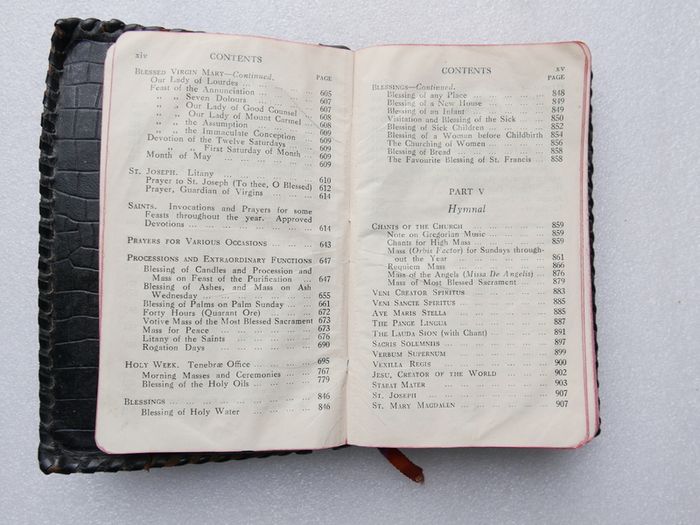 xiv CONTENTS
PAGE
BLESSED VIRGIN MARY—Continued.
Our Lady of Lourdes ... ...
Feast of the Annunciation ... ... 605
„ „ Seven Dolours ... ... 607
„ „ Our Lady of Good Counsel 607
„ „ Our Lady of Mount Carmel 608
„ „ the Assumption ... 608
„ „ the Immaculate Conception 609
Devotion of the Twelve Saturdays ... 609
„ „ First Saturday of Month 609
Month of May ... ... ... 609
ST. JOSEPH. Litany ... ... ... 610
Prayer to St. Joseph (To thee, O Blessed) 612
Prayer, Guardian of Virgins ... ... 614
SAINTS. Invocations and Prayers for some
Feasts throughout the year. Approved
Devotions ... ... ... ... 614
PRAYERS FOR VARIOUS OCCASIONS ... ... 643
PROCESSIONS AND EXTRAORDINARY FUNCTIONS 647
Blessing of Candles and Procession and
Mass on Feast of the Purification ... 647
Blessing of Ashes, and Mass on Ash
Wednesday ... ... ... ... 655
Blessing of Palms on Palm Sunday ... 661
Forty Hours (Quarant Ore) ... ... 672
Votive Mass of the Most Blessed Sacrament 673
Mass for Peace ... ... ... 673
Litany of the Saints ... ... ... 676
Rogation Days ... ... ... ... 690
HOLY WEEK. Tenebræ Office ... ... 695
Morning Masses and Ceremonies ... 767
Blessing of the Holy Oils ... ... 779
BLESSINGS ... ... ... ... ... 846
Blessing of Holy Water ... ... ... 846
CONTENTS xv
PAGE
BLESSINGS—Continued.
Blessing of any Place ... ... ... 848
Blessing of a New House ... ... 849
Blessing of an Infant ... ... ... 849
Visitation and Blessing of the Sick ... 850
Blessing of Sick Children ... ... 852
Blessing of a Woman before Childbirth 854
The Churching of Women ... ... 856
Blessing of Bread ... ... ... 858
The Favourite Blessing of St. Francis ... 858
PART V
Hymnal
CHANTS OF THE CHURCH ... ... ... 859
Note on Gregorian Music ... ... 859
Chants for High Mass ... ... ... 859
Mass (Orbis Factor) for Sundays through-
out the Year ... ... ... ... 861
Requiem Mass ... ... ... ... 866
Mass of the Angels (Missa De Angelis) ... 876
Mass of Most Blessed Sacrament ... 879
VENI CREATOR SPIRITUS ... ... ... 883
VENI SANCTE SPIRITUS ... ... ... 885
AVE MARIS STELLA ... ... ... ... 885
THE PANGE LINGUA ... ... ... ... 887
THE LAUDA SION (with Chant) ... ... 891
SACRIS SOLEMNIIS ... ... ... ... 897
VERBUM SUPERNUM ... ... ... ... 899
VEXILLA REGIS ... ... ... ... 900
JESU, CREATOR OF THE WORLD ... ... 902
STABAT MATER ... ... ... ... 903
ST. JOSEPH ... ... ... ... ... 907
ST. MARY MAGDALEN ... ... ... ... 907